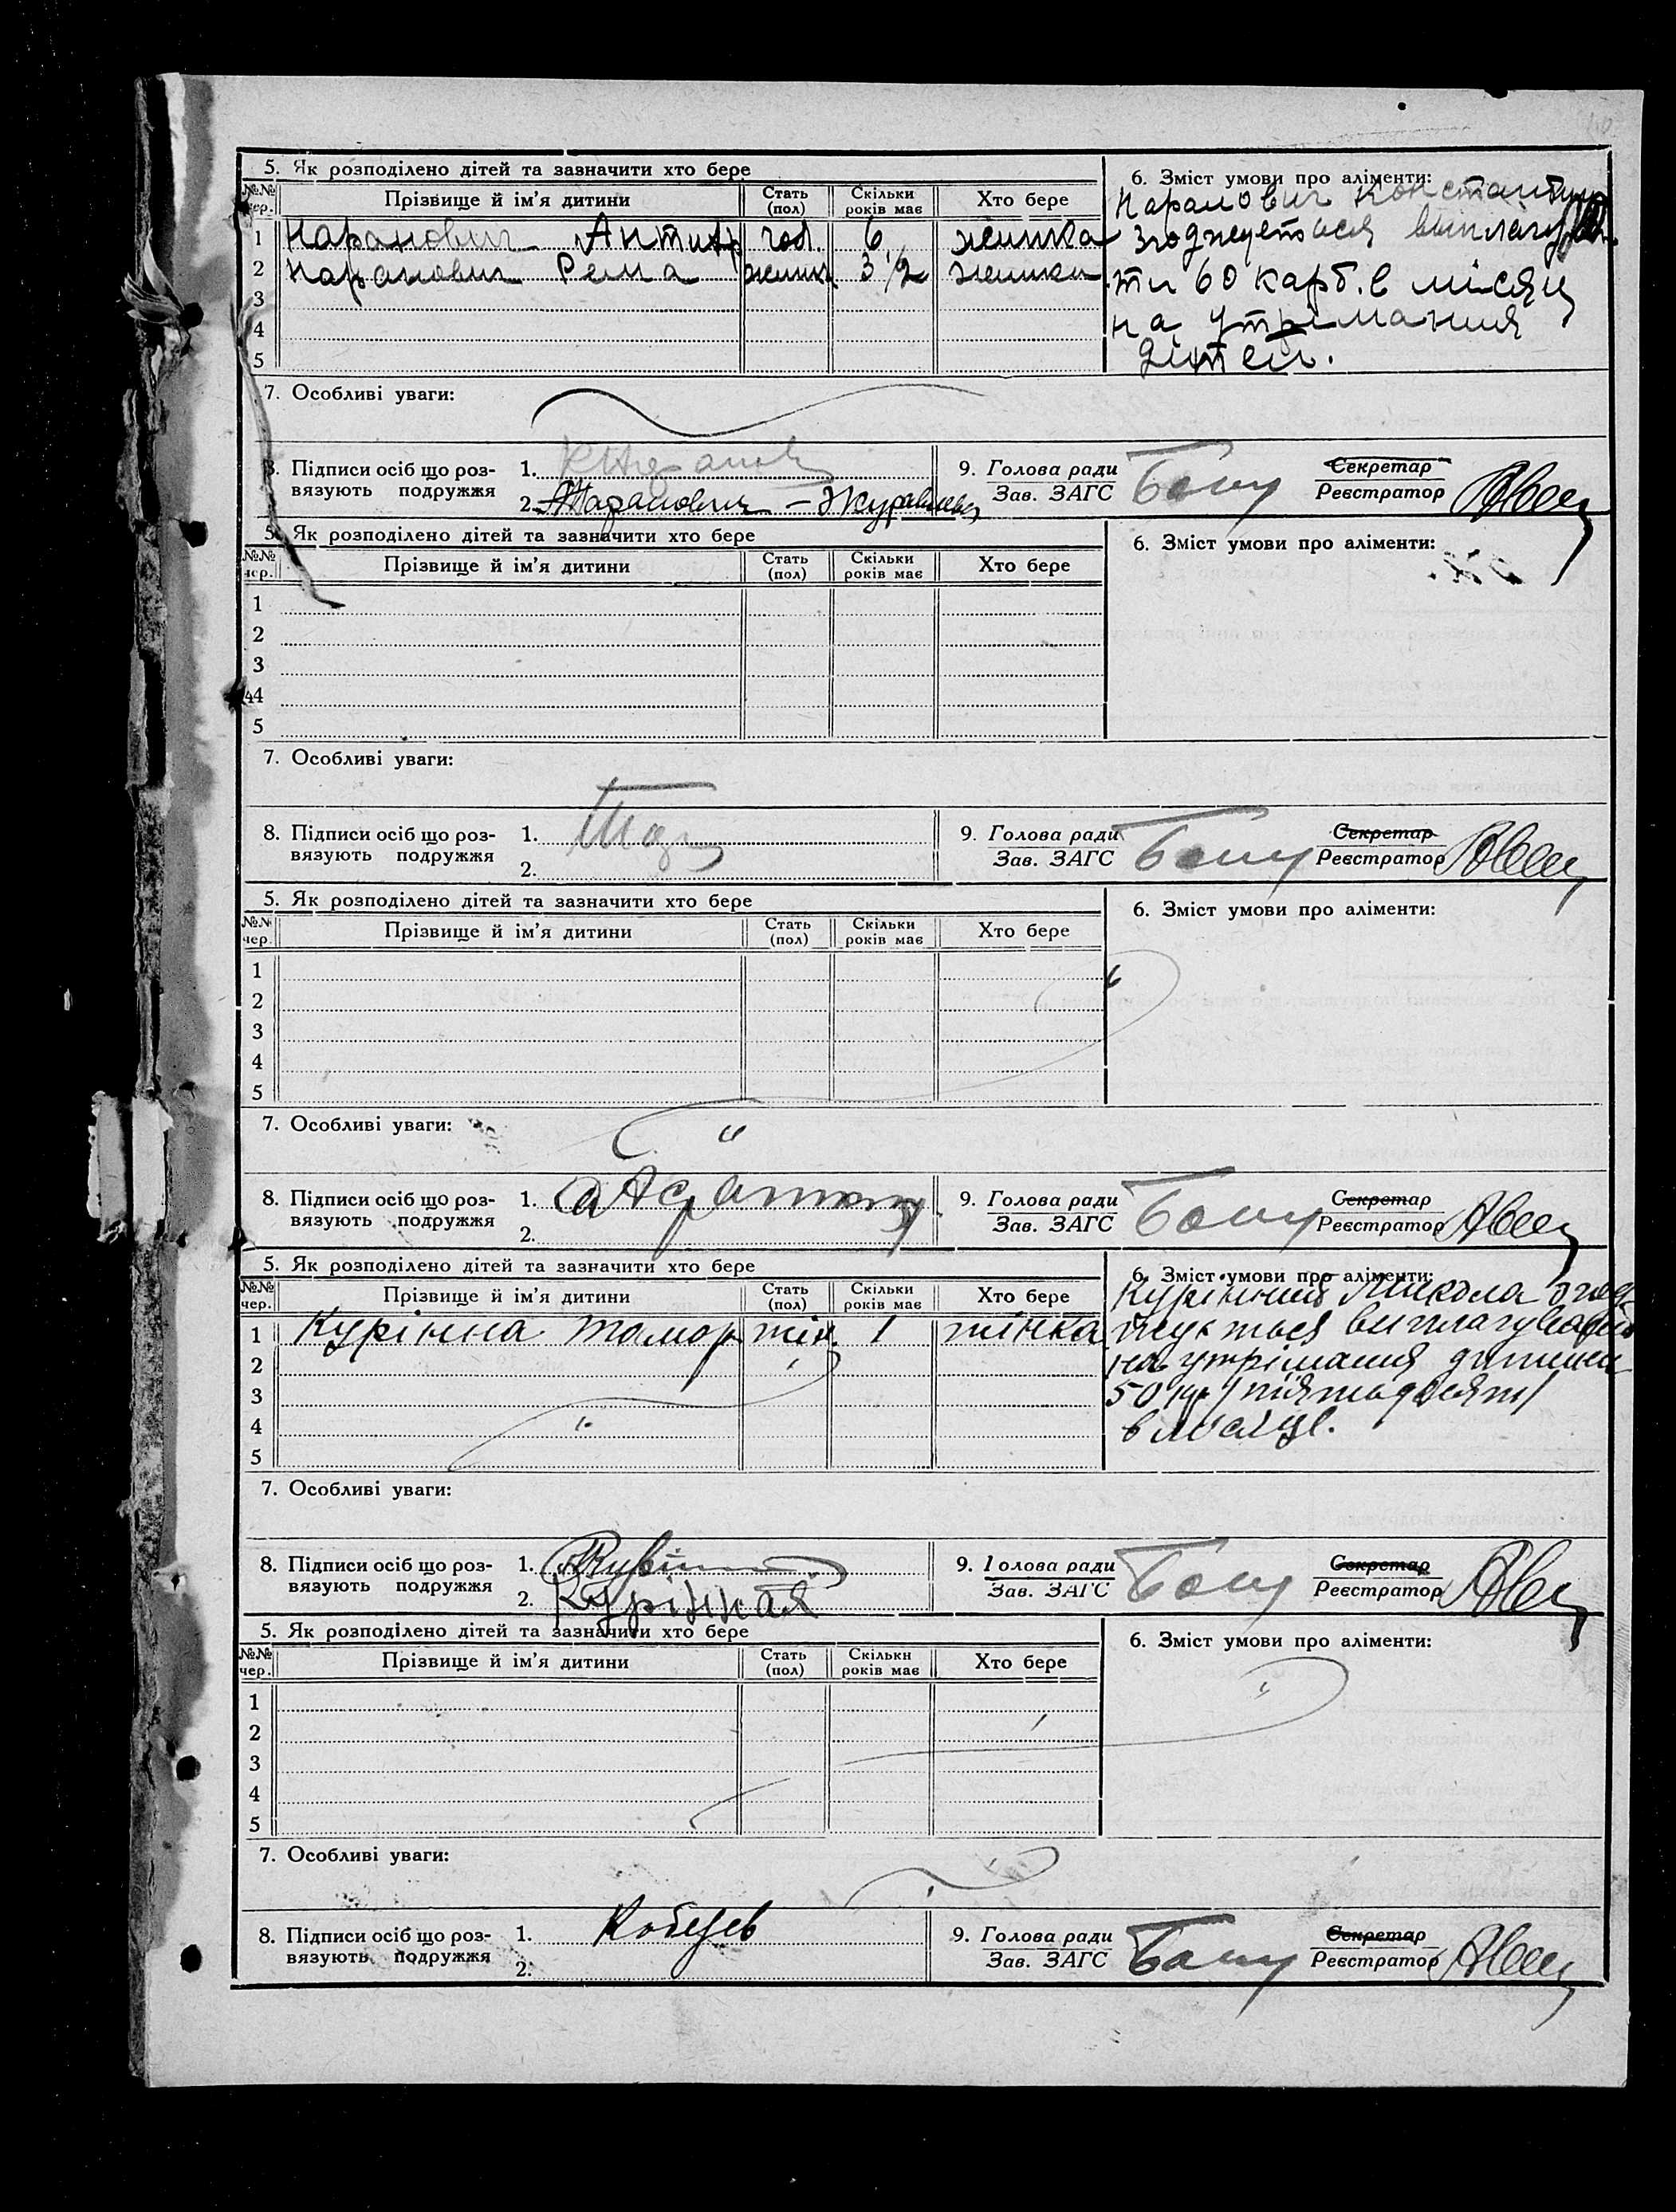 5. Як розподілено дітей та зазначити хто бере
6. Зміст умови про аліменти:
№№ чер. Прізвище й ім'я дитини Стать (пол) Скільки років має Хто бере
Наранович Константин
1 Наранович 6 жинка
згоджується виплачува
2 Наранович Рема 3 1/2 жинка
ти 60 карб. в місяц
3
на утрімання
4
дітей.
5
7. Особливі уваги:
8. Підписи осіб що роз-
вязують подружжя
1.
2. Наранович – Журавлева
9. Голова ради
Зав. ЗАГС
Секретар
Реєстратор
5. Як розподілено дітей та зазначити хто бере
6. Зміст умови про аліменти:
№№ чер. Прізвище й ім'я дитини Стать (пол) Скільки років має Хто бере
1
2
3
44
5
7. Особливі уваги:
8. Підписи осіб що роз-
вязують подружжя
1.
2.
9. Голова ради
Зав. ЗАГС
Секретар
Реєстратор
5. Як розподілено дітей та зазначити хто бере
6. Зміст умови про аліменти:
№№ чер. Прізвище й ім'я дитини Стать (пол) Скільки років має Хто бере
1
2
3
4
5
7. Особливі уваги:
8. Підписи осіб що роз-
вязують подружжя
1.
2.
9. Голова ради
Зав. ЗАГС
Секретар
Реєстратор
5. Як розподілено дітей та зазначити хто бере
6. Зміст умови про аліменти:
№№ чер. Прізвище й ім'я дитини Стать (пол) Скільки років має Хто бере
Курінний Микола згод
1 Курінна Тамар жін. 1 жінка
жується виплачувати
2
на утрімання дитини
3
50 кр /пятьдесят/
4
в місяце.
5
7. Особливі уваги:
8. Підписи осіб що роз-
вязують подружжя
1.
2. Курінная
9. Голова ради
Зав. ЗАГС
Секретар
Реєстратор
5. Як розподілено дітей та зазначити хто бере
6. Зміст умови про аліменти:
№№ чер. Прізвище й ім'я дитини Стать (пол) Скільки років має Хто бере
1
2
3
4
5
7. Особливі уваги:
8. Підписи осіб що роз-
вязують подружжя
1. Кобезев
2.
9. Голова ради
Зав. ЗАГС
Секретар
Реєстратор